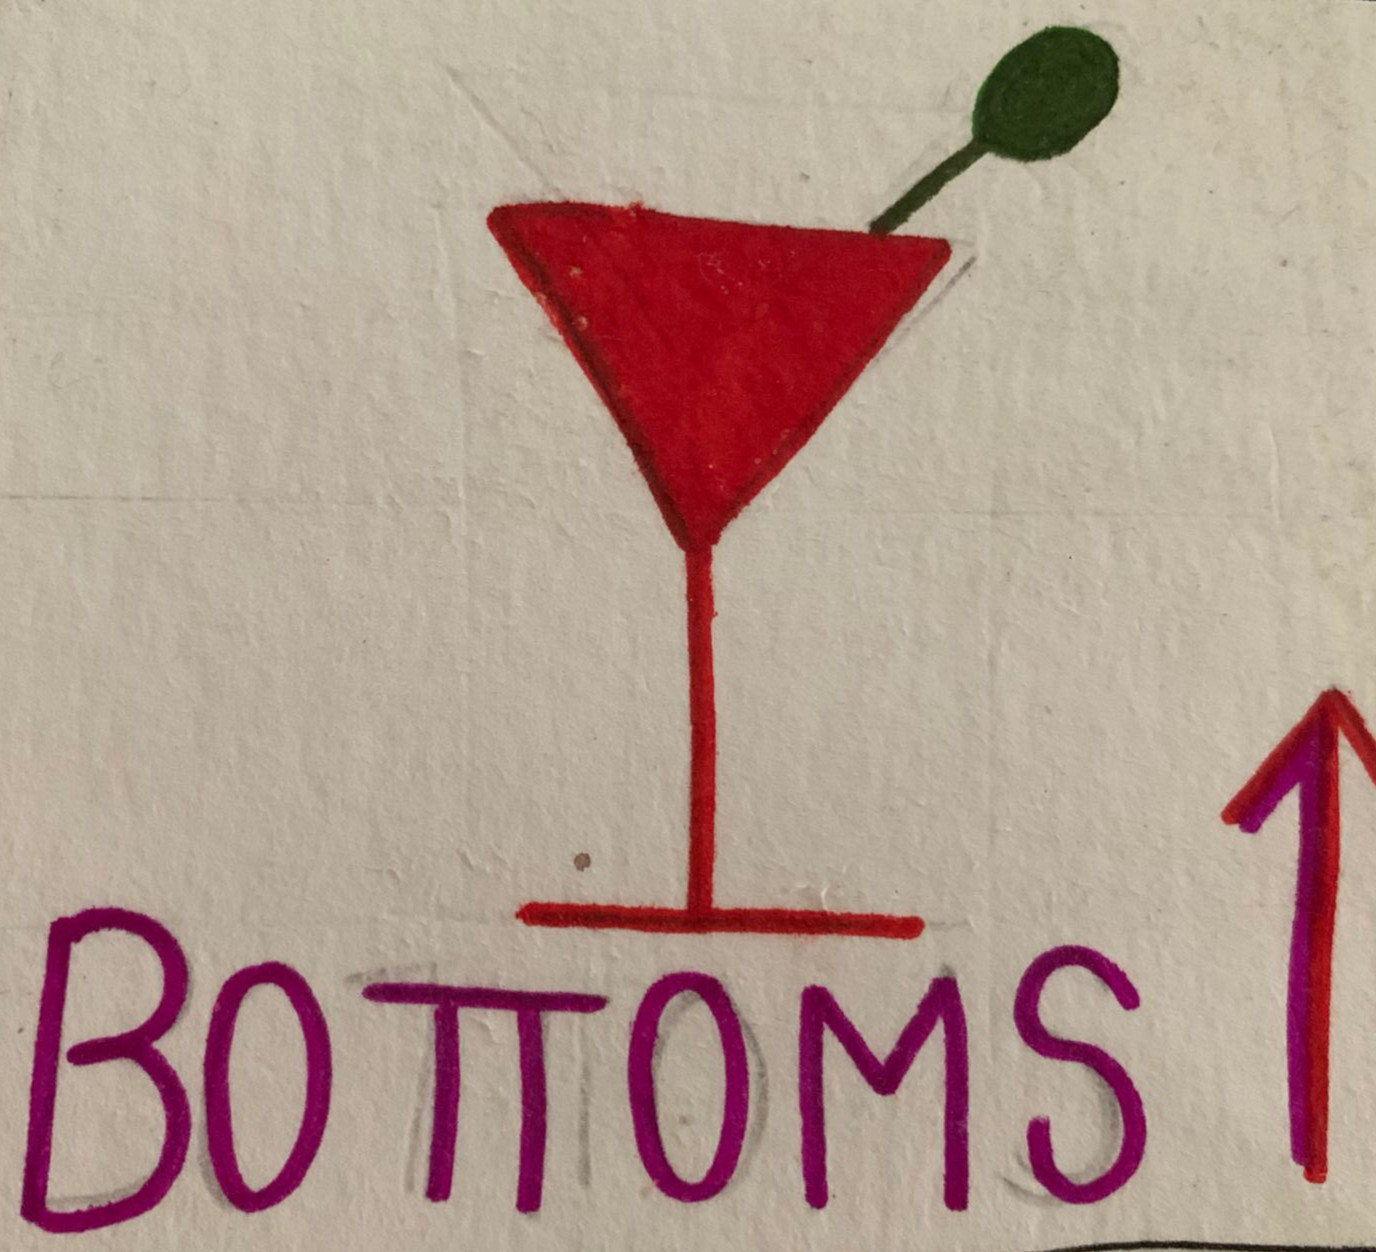 BOTTOMS ↑